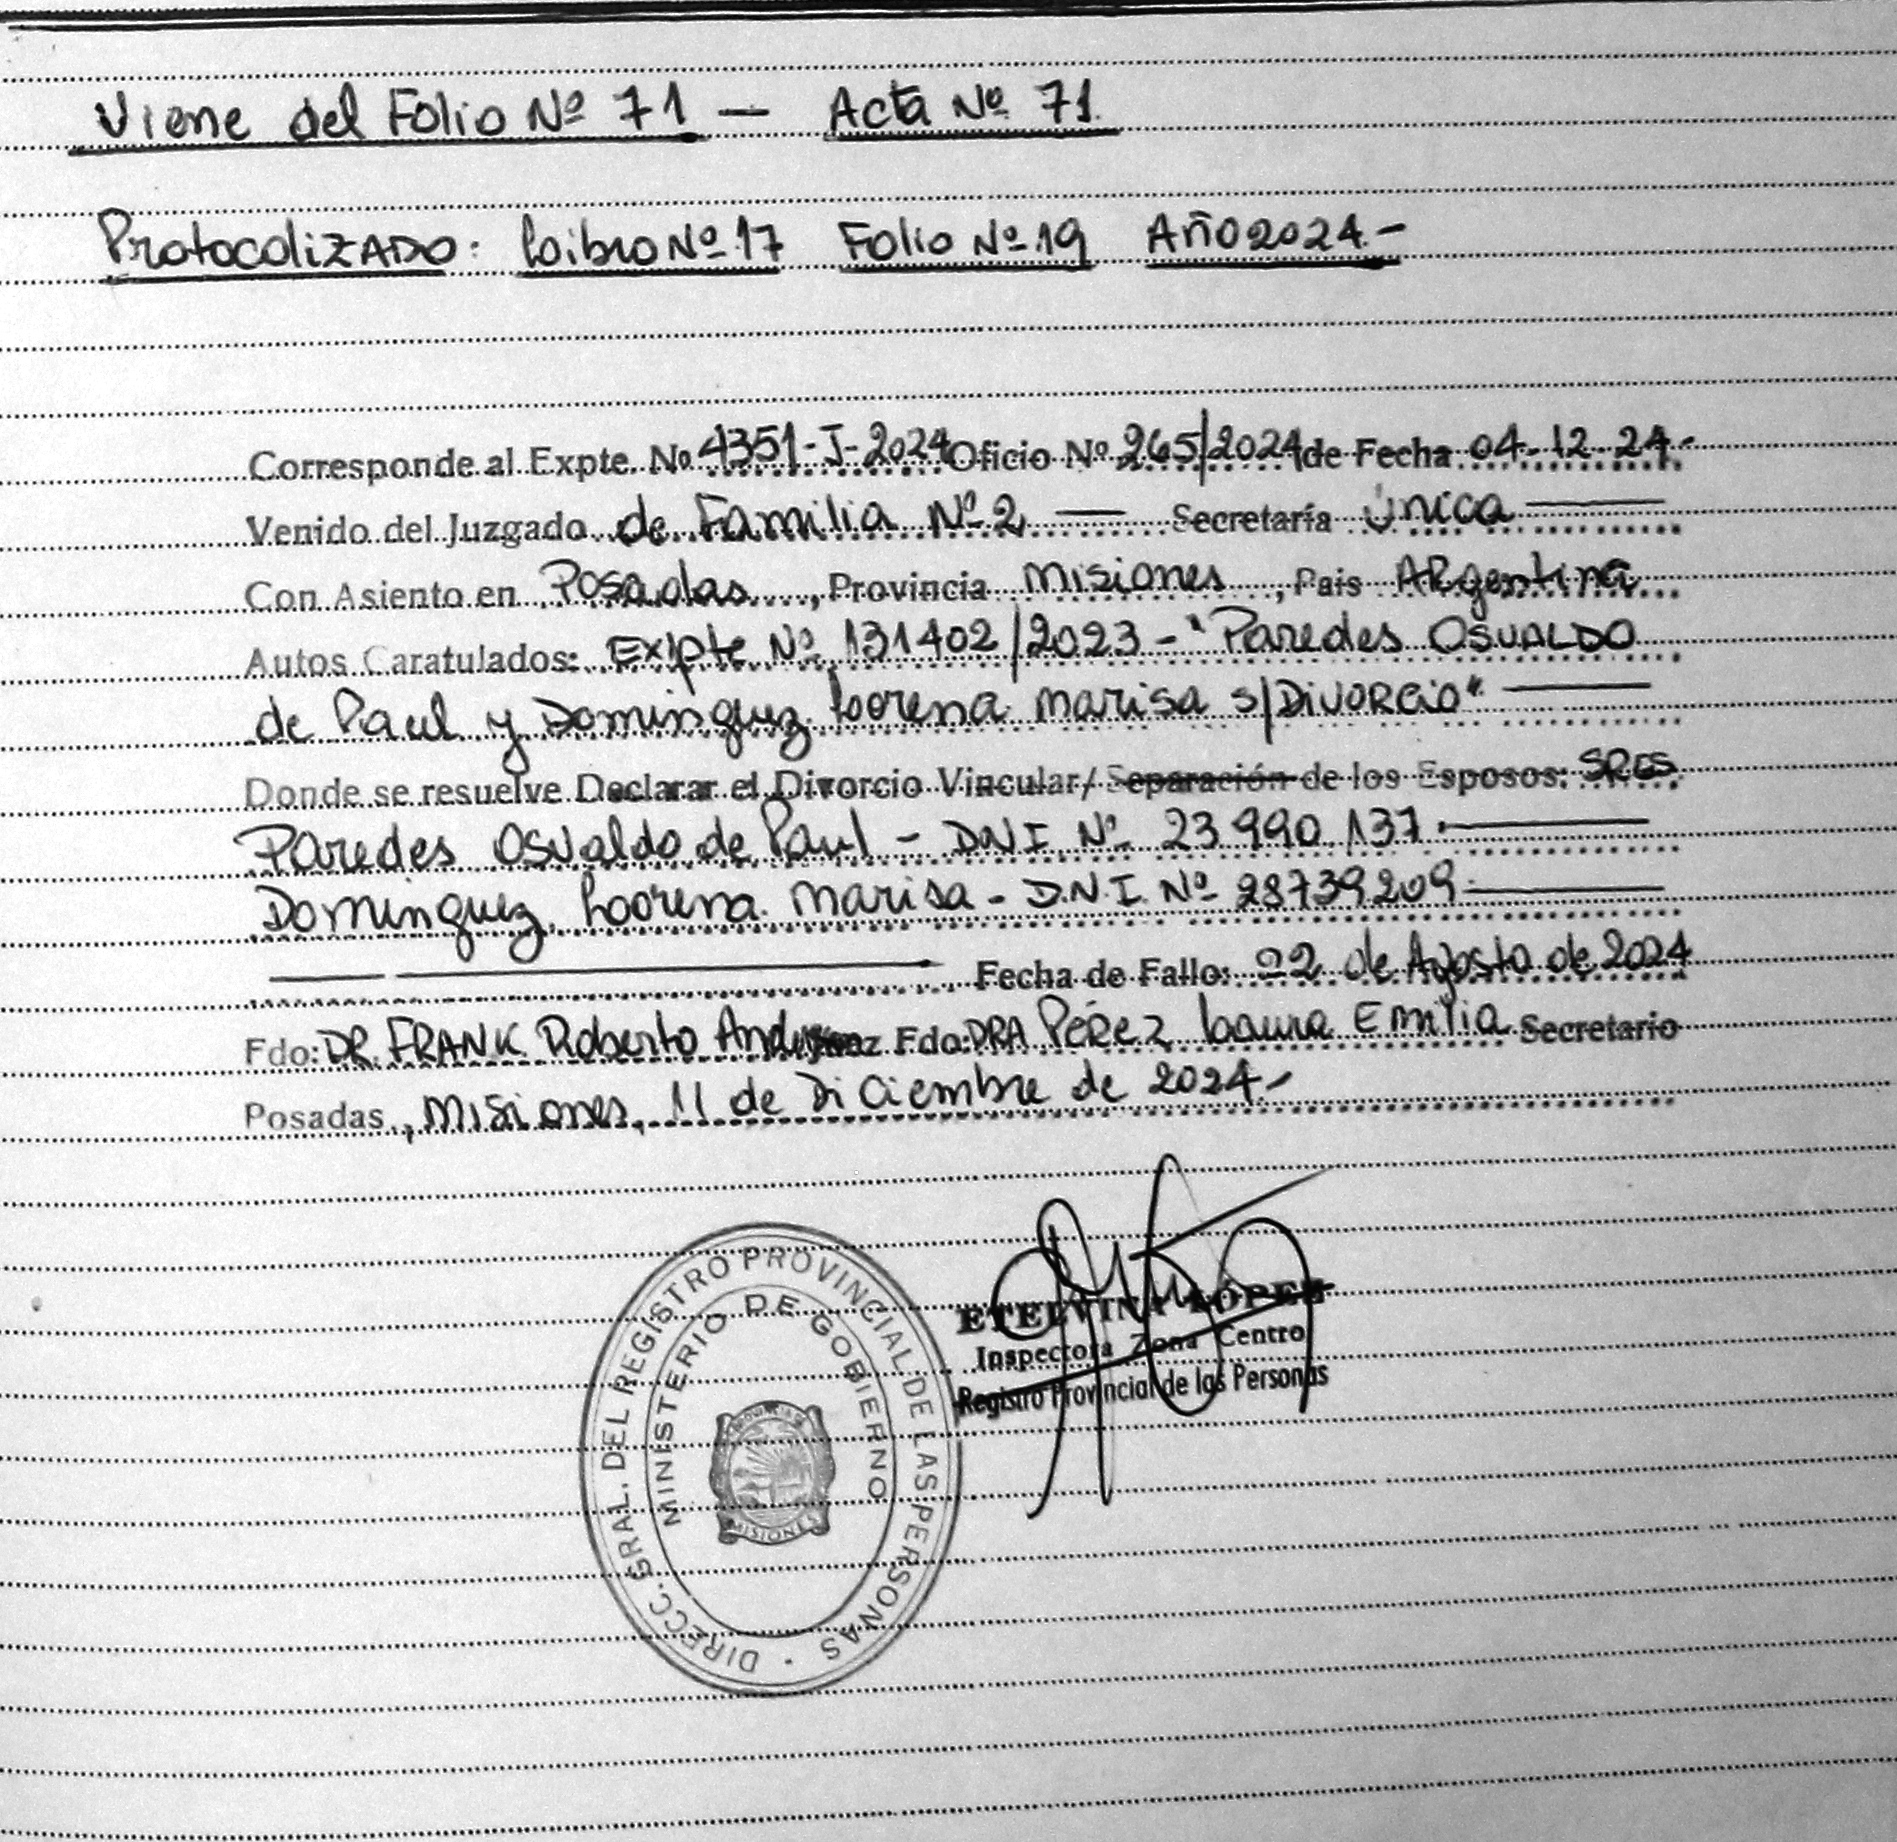 Viene del Folio Nº 71 — Acta Nº 71.
Protocolizado: Libro Nº 17 Folio Nº 19 Año 2024.-
Corresponde al Expte. Nº 4351-J-2024 Oficio Nº 265/2024 de Fecha 04-12-24.-
Venido del Juzgado de Familia Nº 2 — Secretaría Única —
Con Asiento en Posadas, Provincia Misiones, Pais Argentina
Autos Caratulados: Expte Nº 131402/2023 - "Paredes Osvaldo
de Paul y Dominguez Lorena Marisa s/Divorcio" —
Donde se resuelve Declarar el Divorcio Vincular/ Separación de los Esposos: SRES.
Paredes Osvaldo de Paul - DNI Nº 23.990.137. —
Dominguez, Lorena Marisa - D.N.I. Nº 28739209 —
— Fecha de Fallo: 22 de Agosto de 2024
Fdo: DR. FRANK Roberto Fdo: DRA PÉREZ Laura Emilia Secretario
Posadas, Misiones, 11 de Diciembre de 2024.-
ETELVINA LÓPEZ
Inspectora Zona Centro
Registro Provincial de las Personas
DIRECC. GRAL. DEL REGISTRO PROVINCIAL DE LAS PERSONAS
MINISTERIO DE GOBIERNO
PROVINCIA DE
MISIONES